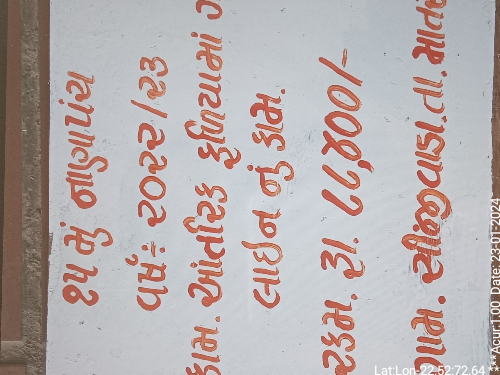 ૧૫ મું નાણાપંચ
વર્ષ: ૨૦૨૨/૨૩
કામ. આંતરિક ફળિયામાં ગ
લાઈન નું કામ.
રકમ. રૂા. ૮૮,૪૦૦/-
ગામ. સીંજીવાડા. તા. માતર
Lat:Lon-22.52:72.64
***Acur:1.00 Date: 23-01-2024 ***